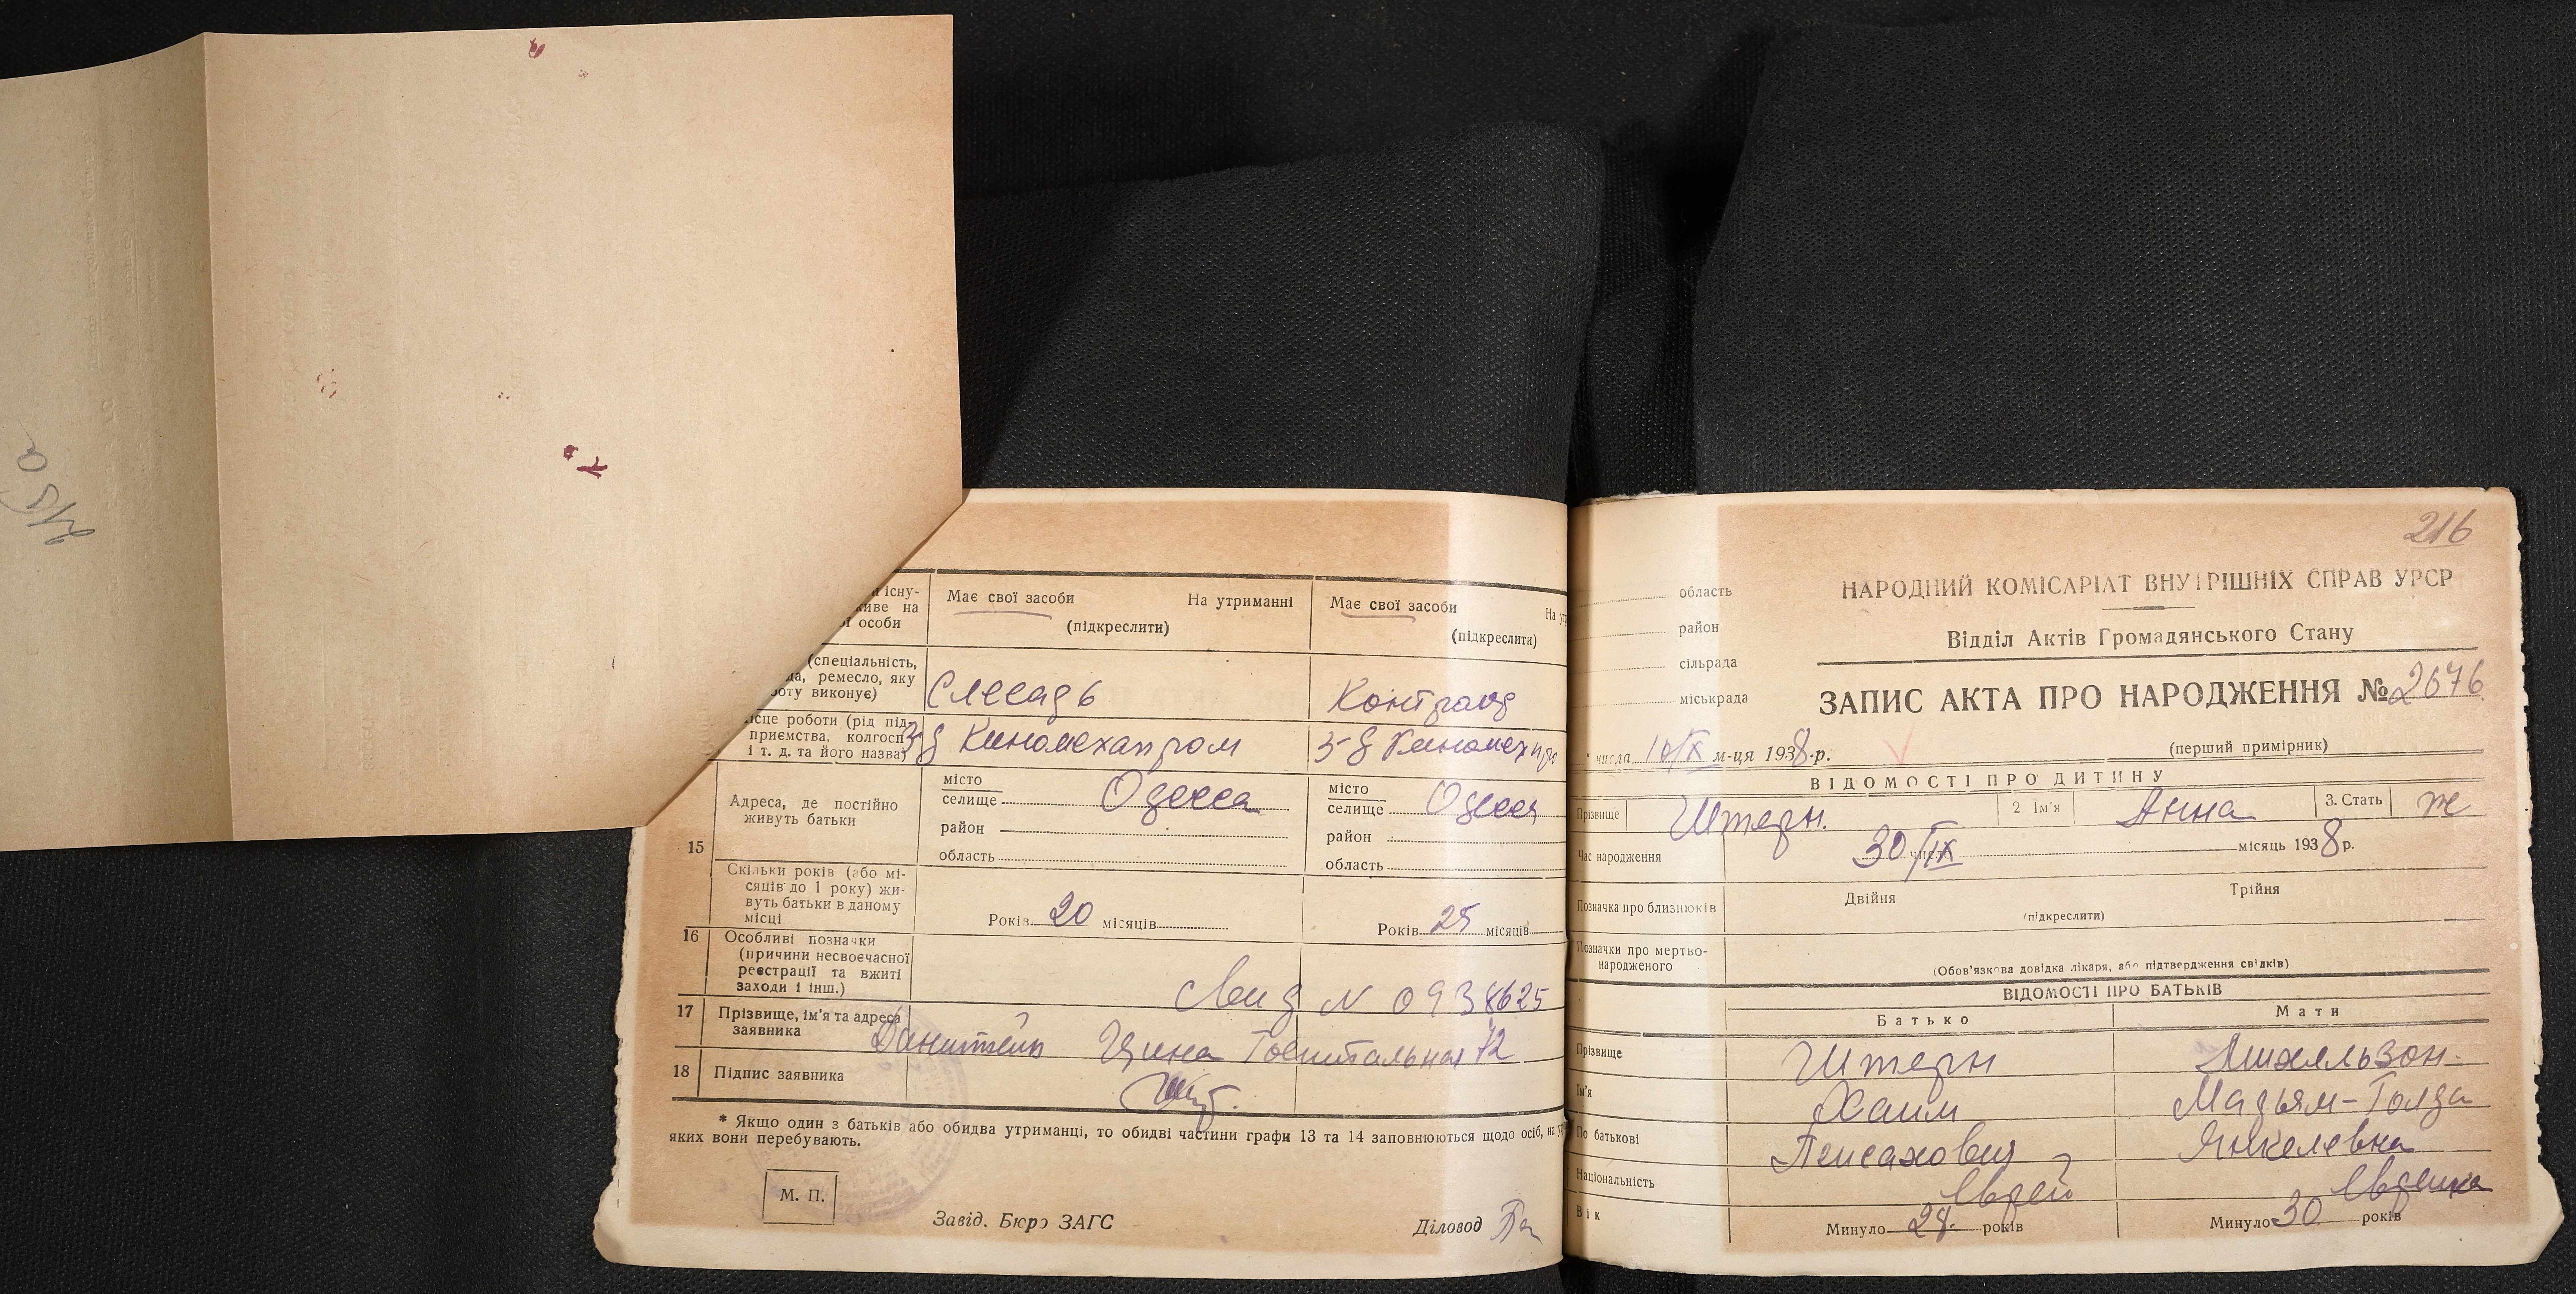 існу-
живе на
особи
Має свої засоби На утриманні
(підкреслити)
Має свої засоби
(підкреслити)
(спеціальність,
ремесло, яку
роботу виконує)
Слесарь
Контролер
Місце роботи (рід під-
приємства, колгосп
і т. д. та його назва)
Киномехапром
15
Адреса, де постійно
живуть батьки
місто
селище Одесса
район
область
місто
селище Одесса
район
область
Скільки років (або мі-
сяців до 1 року) жи-
вуть батьки в даному
місці
Років 20 місяців
Років 25 місяців
16
Особливі позначки
(причини несвоєчасної
реєстрації та вжиті
заходи і інш.)
N 0938625
17
Прізвище, ім'я та адреса
заявника
Цина Госпитальная 72
18
Підпис заявника
* Якщо один з батьків або обидва утриманці, то обидві частини графи 13 та 14 заповнюються щодо осіб, на
яких вони перебувають.
М. П.
Завід. Бюро ЗАГС
Діловод
216
область
район
сільрада
міськрада
НАРОДНИЙ КОМІСАРІАТ ВНУТРІШНІХ СПРАВ УРСР
Відділ Актів Громадянського Стану
ЗАПИС АКТА ПРО НАРОДЖЕННЯ № 2676
числа 10/X м-ця 1938 р.
(перший примірник)
ВІДОМОСТІ ПРО ДИТИНУ
Прізвище Штерн. 2 Ім'я Анна 3. Стать ж
Час народження 30/IX числа місяць 1938 р.
Позначка про близнюків Двійня Трійня
(підкреслити)
Позначки про мертво-
народженого
(Обов'язкова довідка лікаря, або підтвердження свідків)
ВІДОМОСТІ ПРО БАТЬКІВ
Батько Мати
Прізвище Штерн Михельзон
Ім'я Хаим Марьям-Голда
По батькові Пейсахович Янкелевна
Національність Еврей Еврейка
Вік Минуло 28 років Минуло 30 років